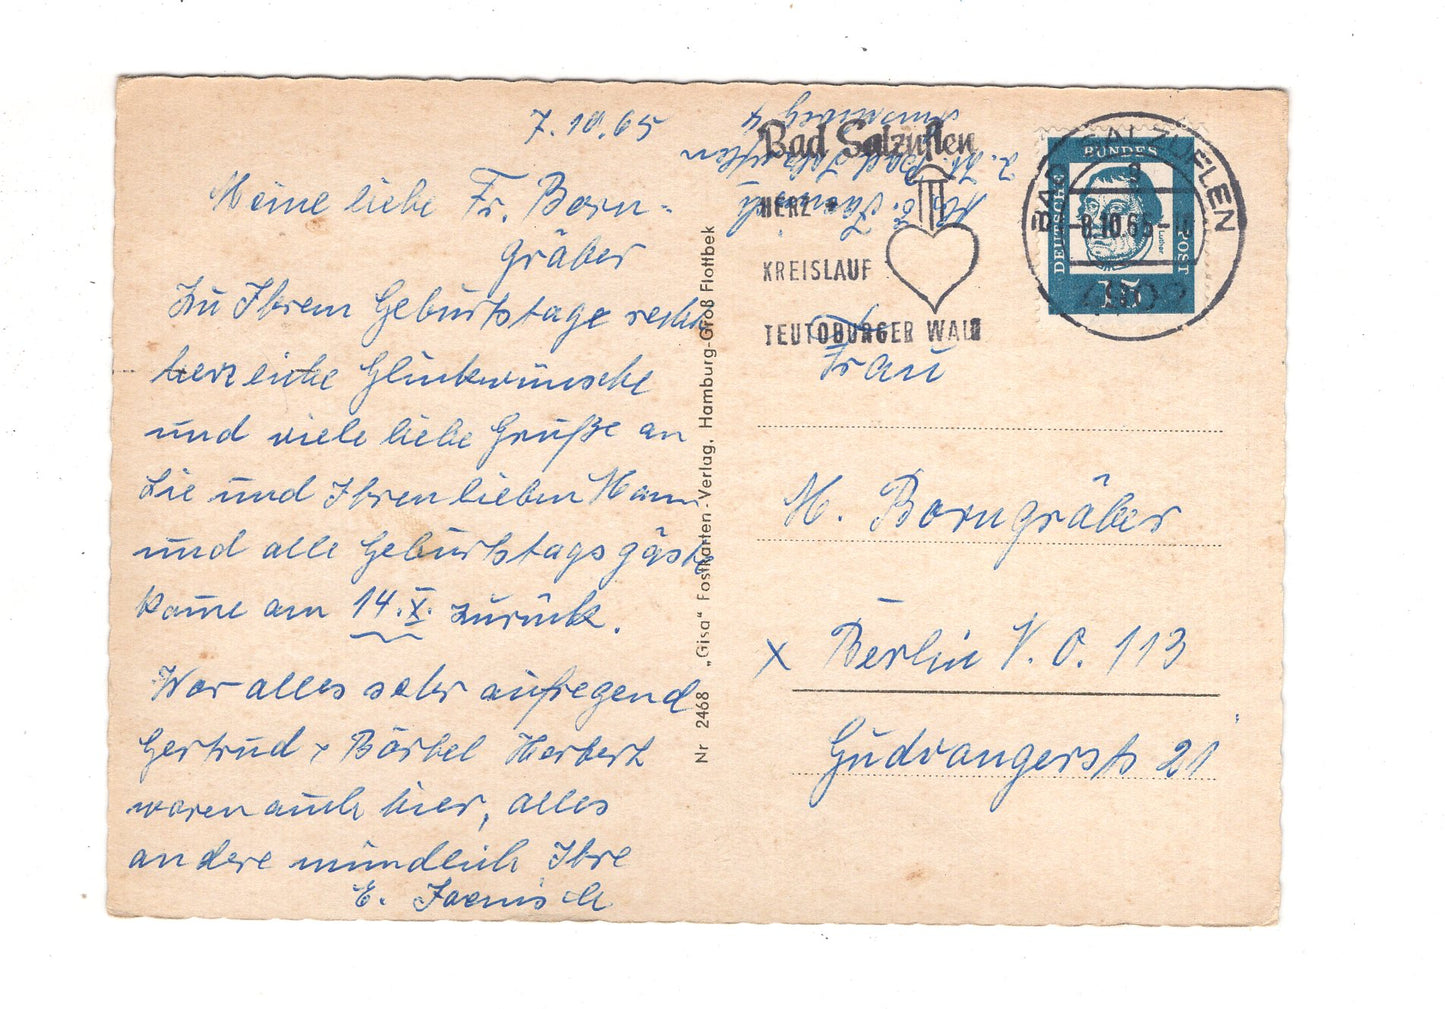 7.10.65
Meine liebe Fr. Born-
gräber
Zu Ihrem Geburtstage recht
herzliche Glückwünsche
und viele liebe Grüße an
Sie und Ihren lieben Mann
und alle Geburtstagsgäste
komme am 14.X. zurück.
War alles sehr aufregend
Gertrud + Bärbel Herbert
waren auch hier, alles
andere mündlich Ihre
E. Jaenisch
Nr 2468 „Gisa“ Postkarten-Verlag, Hamburg-Groß Flottbek
E. Jaenisch
z. Zt. Bad Salzuflen
Bad Salzuflen
HERZ -
KREISLAUF
TEUTOBURGER WALD
BAD SALZUFLEN
-8.10.65-
4902
DEUTSCHE
BUNDES
POST
Luther
15
Frau
M. Borngräber
x Berlin N.O. 113
Gudvangerstr 21